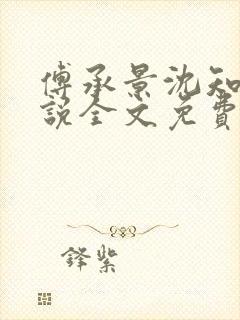 傅承景沈知
說全文免費
鋒紫